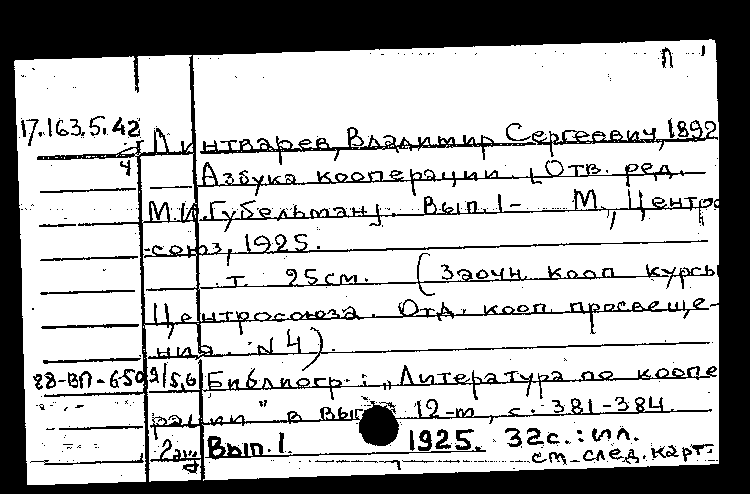 Л
17.163.5.42
4
Линтварев, Владимир Сергеевич, 1892
Азбука кооперации. [Отв. ред.
М.И. Губельман]. Вып. 1- М., Центро
-союз, 1925.
т. 25см. (Заочн. кооп курсы
Центросоюза. Отд. кооп. просвеще-
ния. N4).
88-ВП-650 2/5,6 Библиогр.: "Литература по коопе
рации" в Вып. 12-м, с. 381-384.
Вып. 1. 1925. 32с.: ил.
см. след. карт.